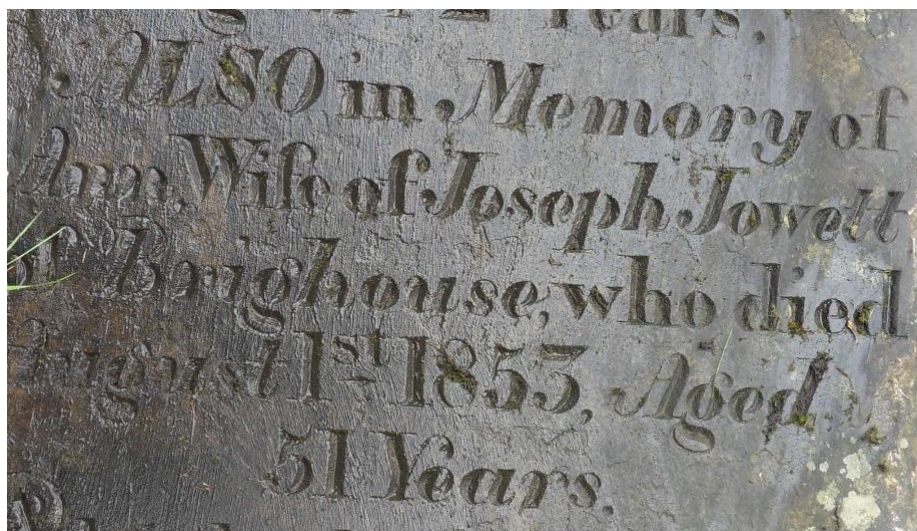 Years.
ALSO in Memory of
Ann, Wife of Joseph Jowett
of Brighouse, who died
August 1st 1853, Aged
51 Years.